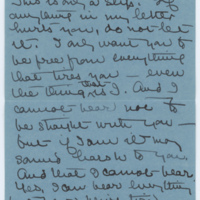 This is only a slip. If
anything in my letter
hurts you, do not let
it. I only want you to
be free from everything
that tires you — even
the that is I. And I
cannot bear not to
be straight with you —
but if I am it may
sound harsh to you.
And that I cannot bear
Yes, I can bear everything